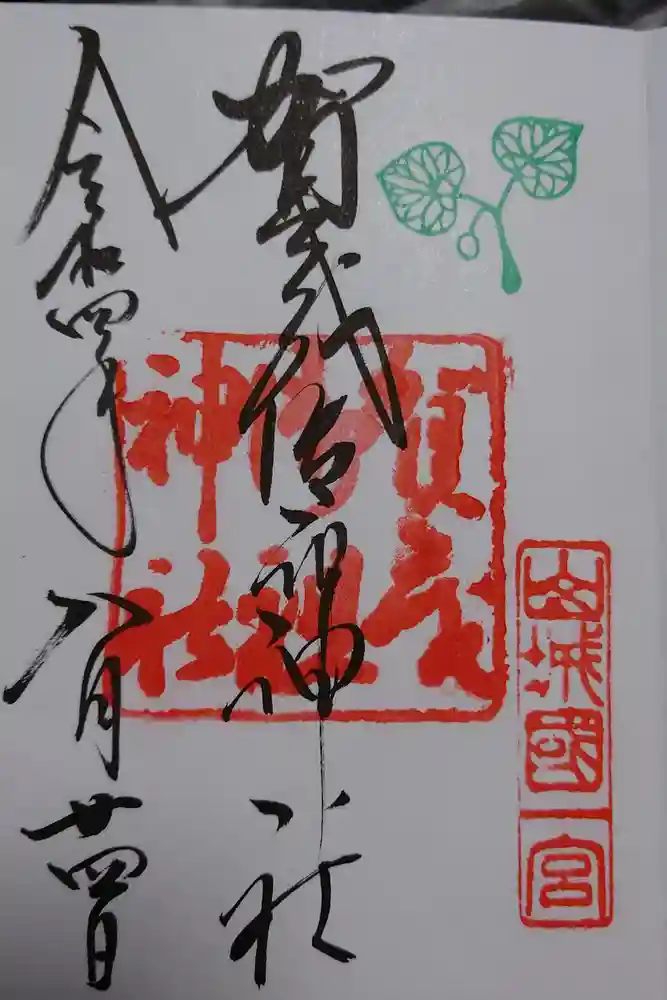 山城國一宮
賀茂御祖神社
賀茂
御祖
神社
令和四年八月廿四日